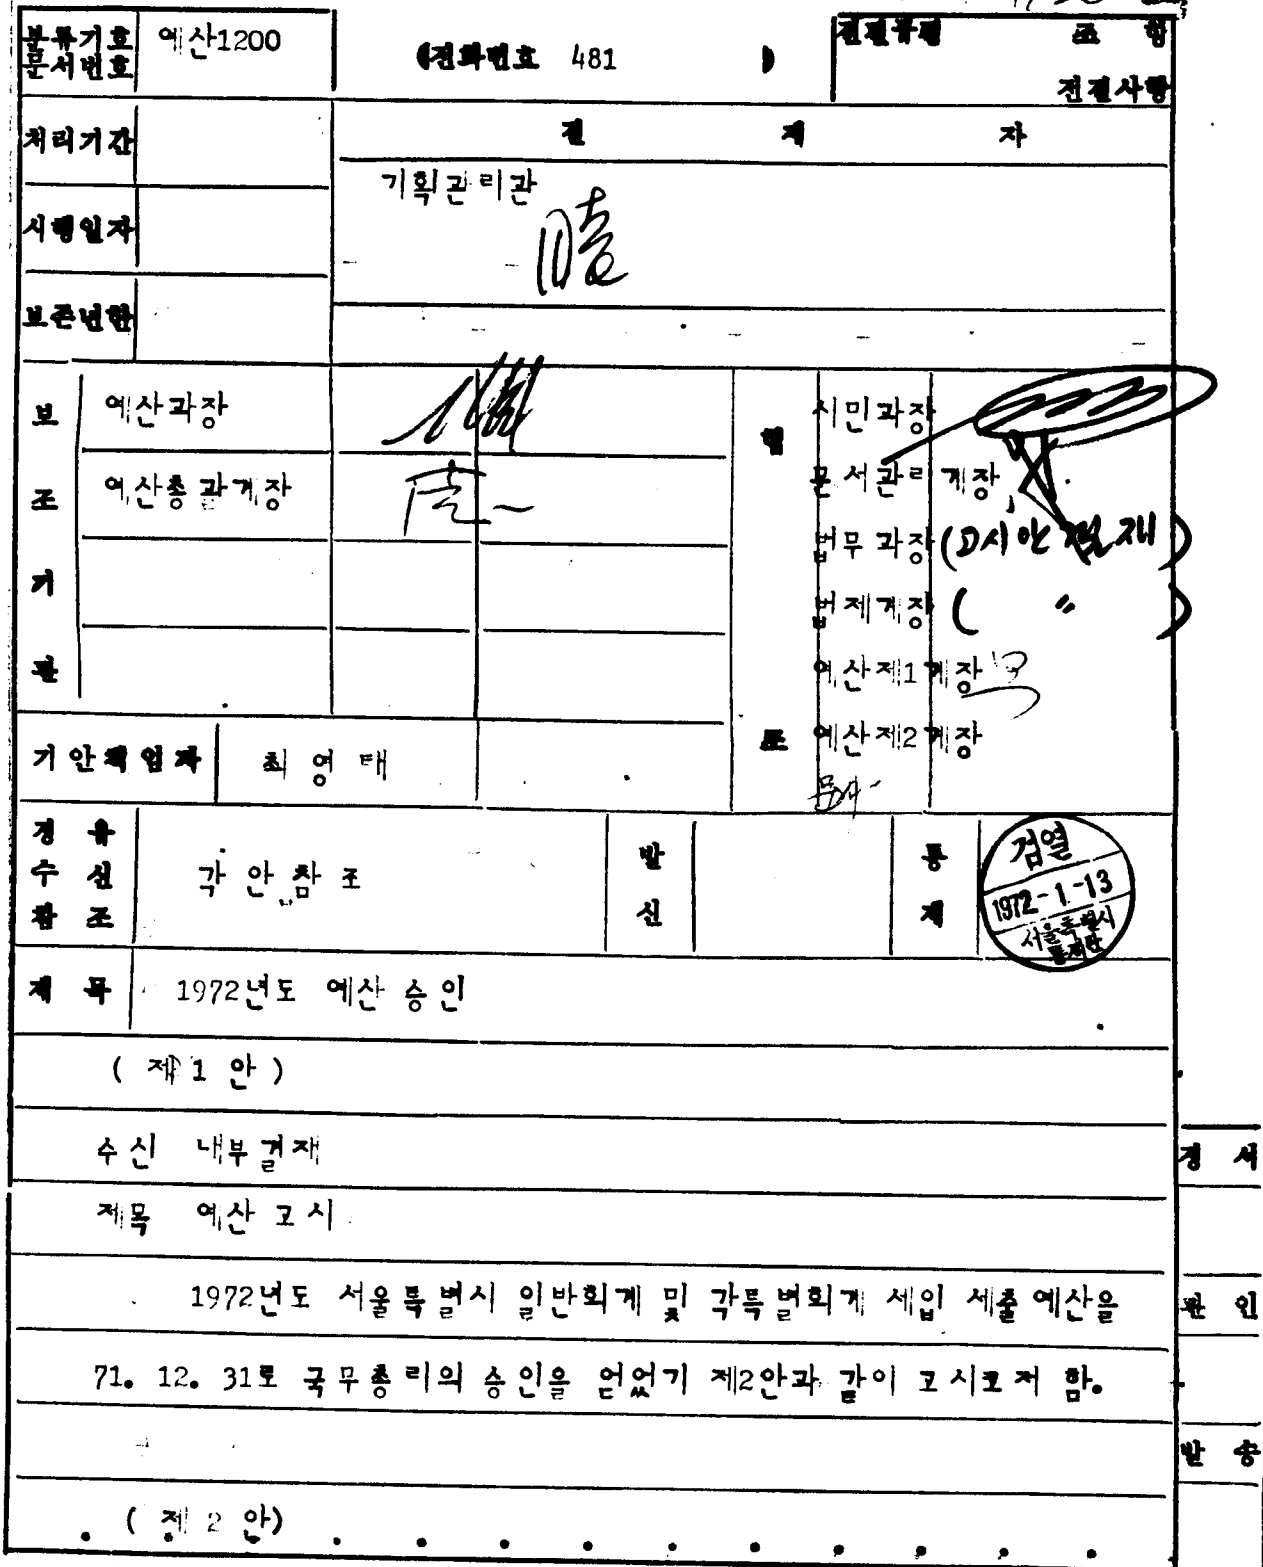 분류기호
문서번호
예산1200
(전화번호 481 )
전결규정 조 항
전결사항
처리기간
결 재 자
기획관리관
시행일자
보존년한
보 조 기 관
예산과장
예산총괄계장
협 조
시민과장
문서관리계장
법무과장 (고시안 결재)
법제계장 ( 〃 )
예산제1계장
예산제2계장
기안책임자
최영태
경유
수신
참조
각 안 참조
발신
통제
검열
1972-1-13
서울특별시
통제관
제목
1972년도 예산 승인
( 제 1 안 )
수신 내부결재
정서
제목 예산 고시
1972년도 서울특별시 일반회계 및 각특별회계 세입 세출 예산을
관인
71. 12. 31로 국무총리의 승인을 얻었기 제2안과 같이 고시코저 함.
발송
( 제 2 안)